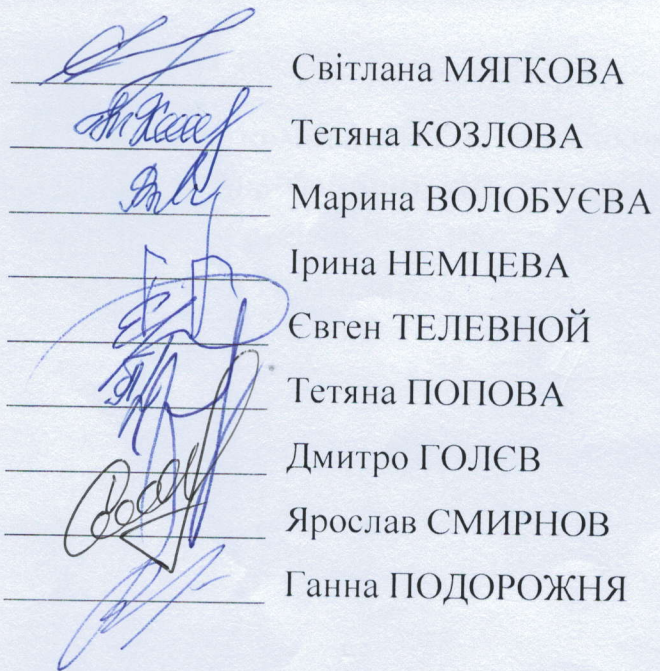 Світлана МЯГКОВА
Тетяна КОЗЛОВА
Марина ВОЛОБУЄВА
Ірина НЕМЦЕВА
Євген ТЕЛЕВНОЙ
Тетяна ПОПОВА
Дмитро ГОЛЄВ
Ярослав СМИРНОВ
Ганна ПОДОРОЖНЯ